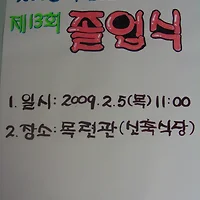 제13회 졸업식
1. 일시: 2009.2.5(목) 11:00
2. 장소: 목련관(신축식당)